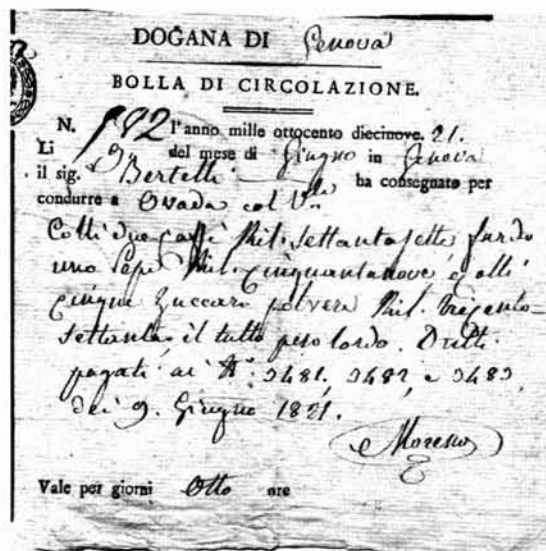 DOGANA DI Genova
BOLLA DI CIRCOLAZIONE.
N. 982 l'anno mille ottocento diecinove. 21.
Li 9 del mese di Giugno in Genova
il sig. Bertelli ha consegnato per
condurre a Ovada col
Colli due caffè Kil. settantasette fardo
uno Pepe Kil. cinquantanove, e colli
cinque Zuccaro polvere Kil. trecento
settanta, il tutto peso lordo. Dritti
pagati ai N.i 3481, 3482, e 3483,
dei 9. Giugno 1821.
Moreno
Vale per giorni Otto ore